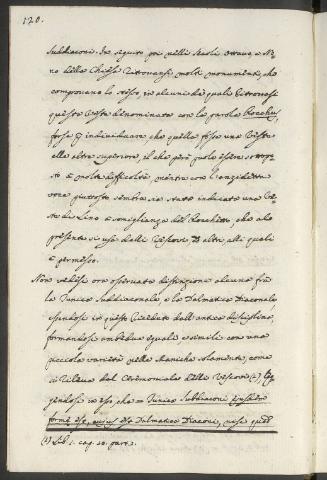 120.
Suddiaconi. In seguito poi nelli Secoli ottavo, e No-
no della Chiesa ritrovansi molti monumenti, che
comprovano lo stesso, in alcuni de quali ritrovasi
questa Veste denominata con la parola Rocchus,
forse p individuare, che quella fosse una Veste
alle altre superiore, il che però puole essere sottopo-
sto a molte difficoltà, mentre con l'anzidetta
voce piuttosto sembra sia stata indicata una Ve-
ste di Lino a somiglianza del Rocchetto, che al
presente si usa dalli Vescovi, ed altri alli quali
è permesso.
Non vedesi ora osservata distinzione alcuna frà
la Tunica Suddiaconale, e la Dalmatica Diaconale,
essendosi in questo receduto dall'antica disciplina,
formandosi ambedue eguali, e simili con una
piccola varietà nelle Maniche solamente, come
si rileva dal Ceremoniale delli Vescovi (1), leg-
gendosi in esso, che = Tunica Subdiaconi ejusdem
formæ est, cujus est Dalmatica Diaconi, nisi quod
(1) Lib. 1. cap. 10. par. 1.